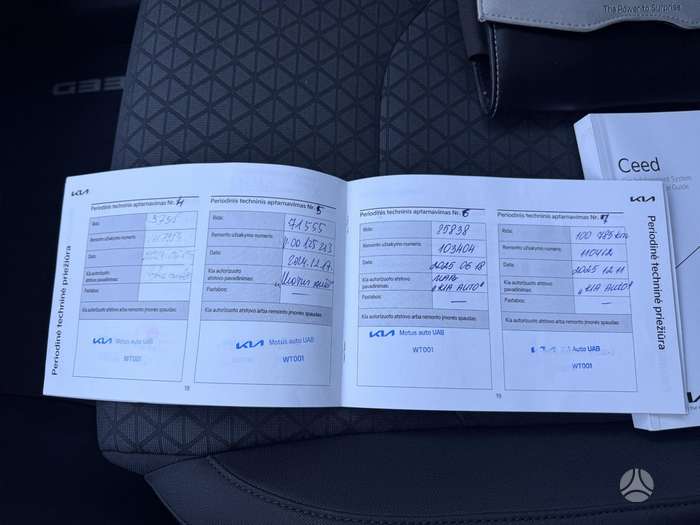 The Power to Surprise
CEED
Ceed
KIA
Periodinė techninė priežiūra
Periodinis techninis aptarnavimas Nr. 4
Rida:
Remonto užsakymo numeris:
Data:
Kia autorizuoto atstovo pavadinimas:
Pastabos:
Kia autorizuoto atstovo arba remonto įmonės spaudas:
KIA Motus auto UAB
WT001
Periodinis techninis aptarnavimas Nr. 5
Rida: 71555
Remonto užsakymo numeris:
Data: 2024.12.17
Kia autorizuoto atstovo pavadinimas:
Pastabos: —
Kia autorizuoto atstovo arba remonto įmonės spaudas:
KIA Motus auto UAB
WT001
18
Periodinis techninis aptarnavimas Nr. 6
Rida: 85838
Remonto užsakymo numeris: 103404
Data: 2025 06 18
Kia autorizuoto atstovo pavadinimas: "KIA AUTO"
Pastabos: —
Kia autorizuoto atstovo arba remonto įmonės spaudas:
KIA Motus auto UAB
WT001
Periodinis techninis aptarnavimas Nr. 7
Rida: 100 785 km
Remonto užsakymo numeris: 110412
Data: 2025 12 11
Kia autorizuoto atstovo pavadinimas: "KIA AUTO"
Pastabos: —
Kia autorizuoto atstovo arba remonto įmonės spaudas:
Auto UAB
WT001
19
KIA
Periodinė techninė priežiūra